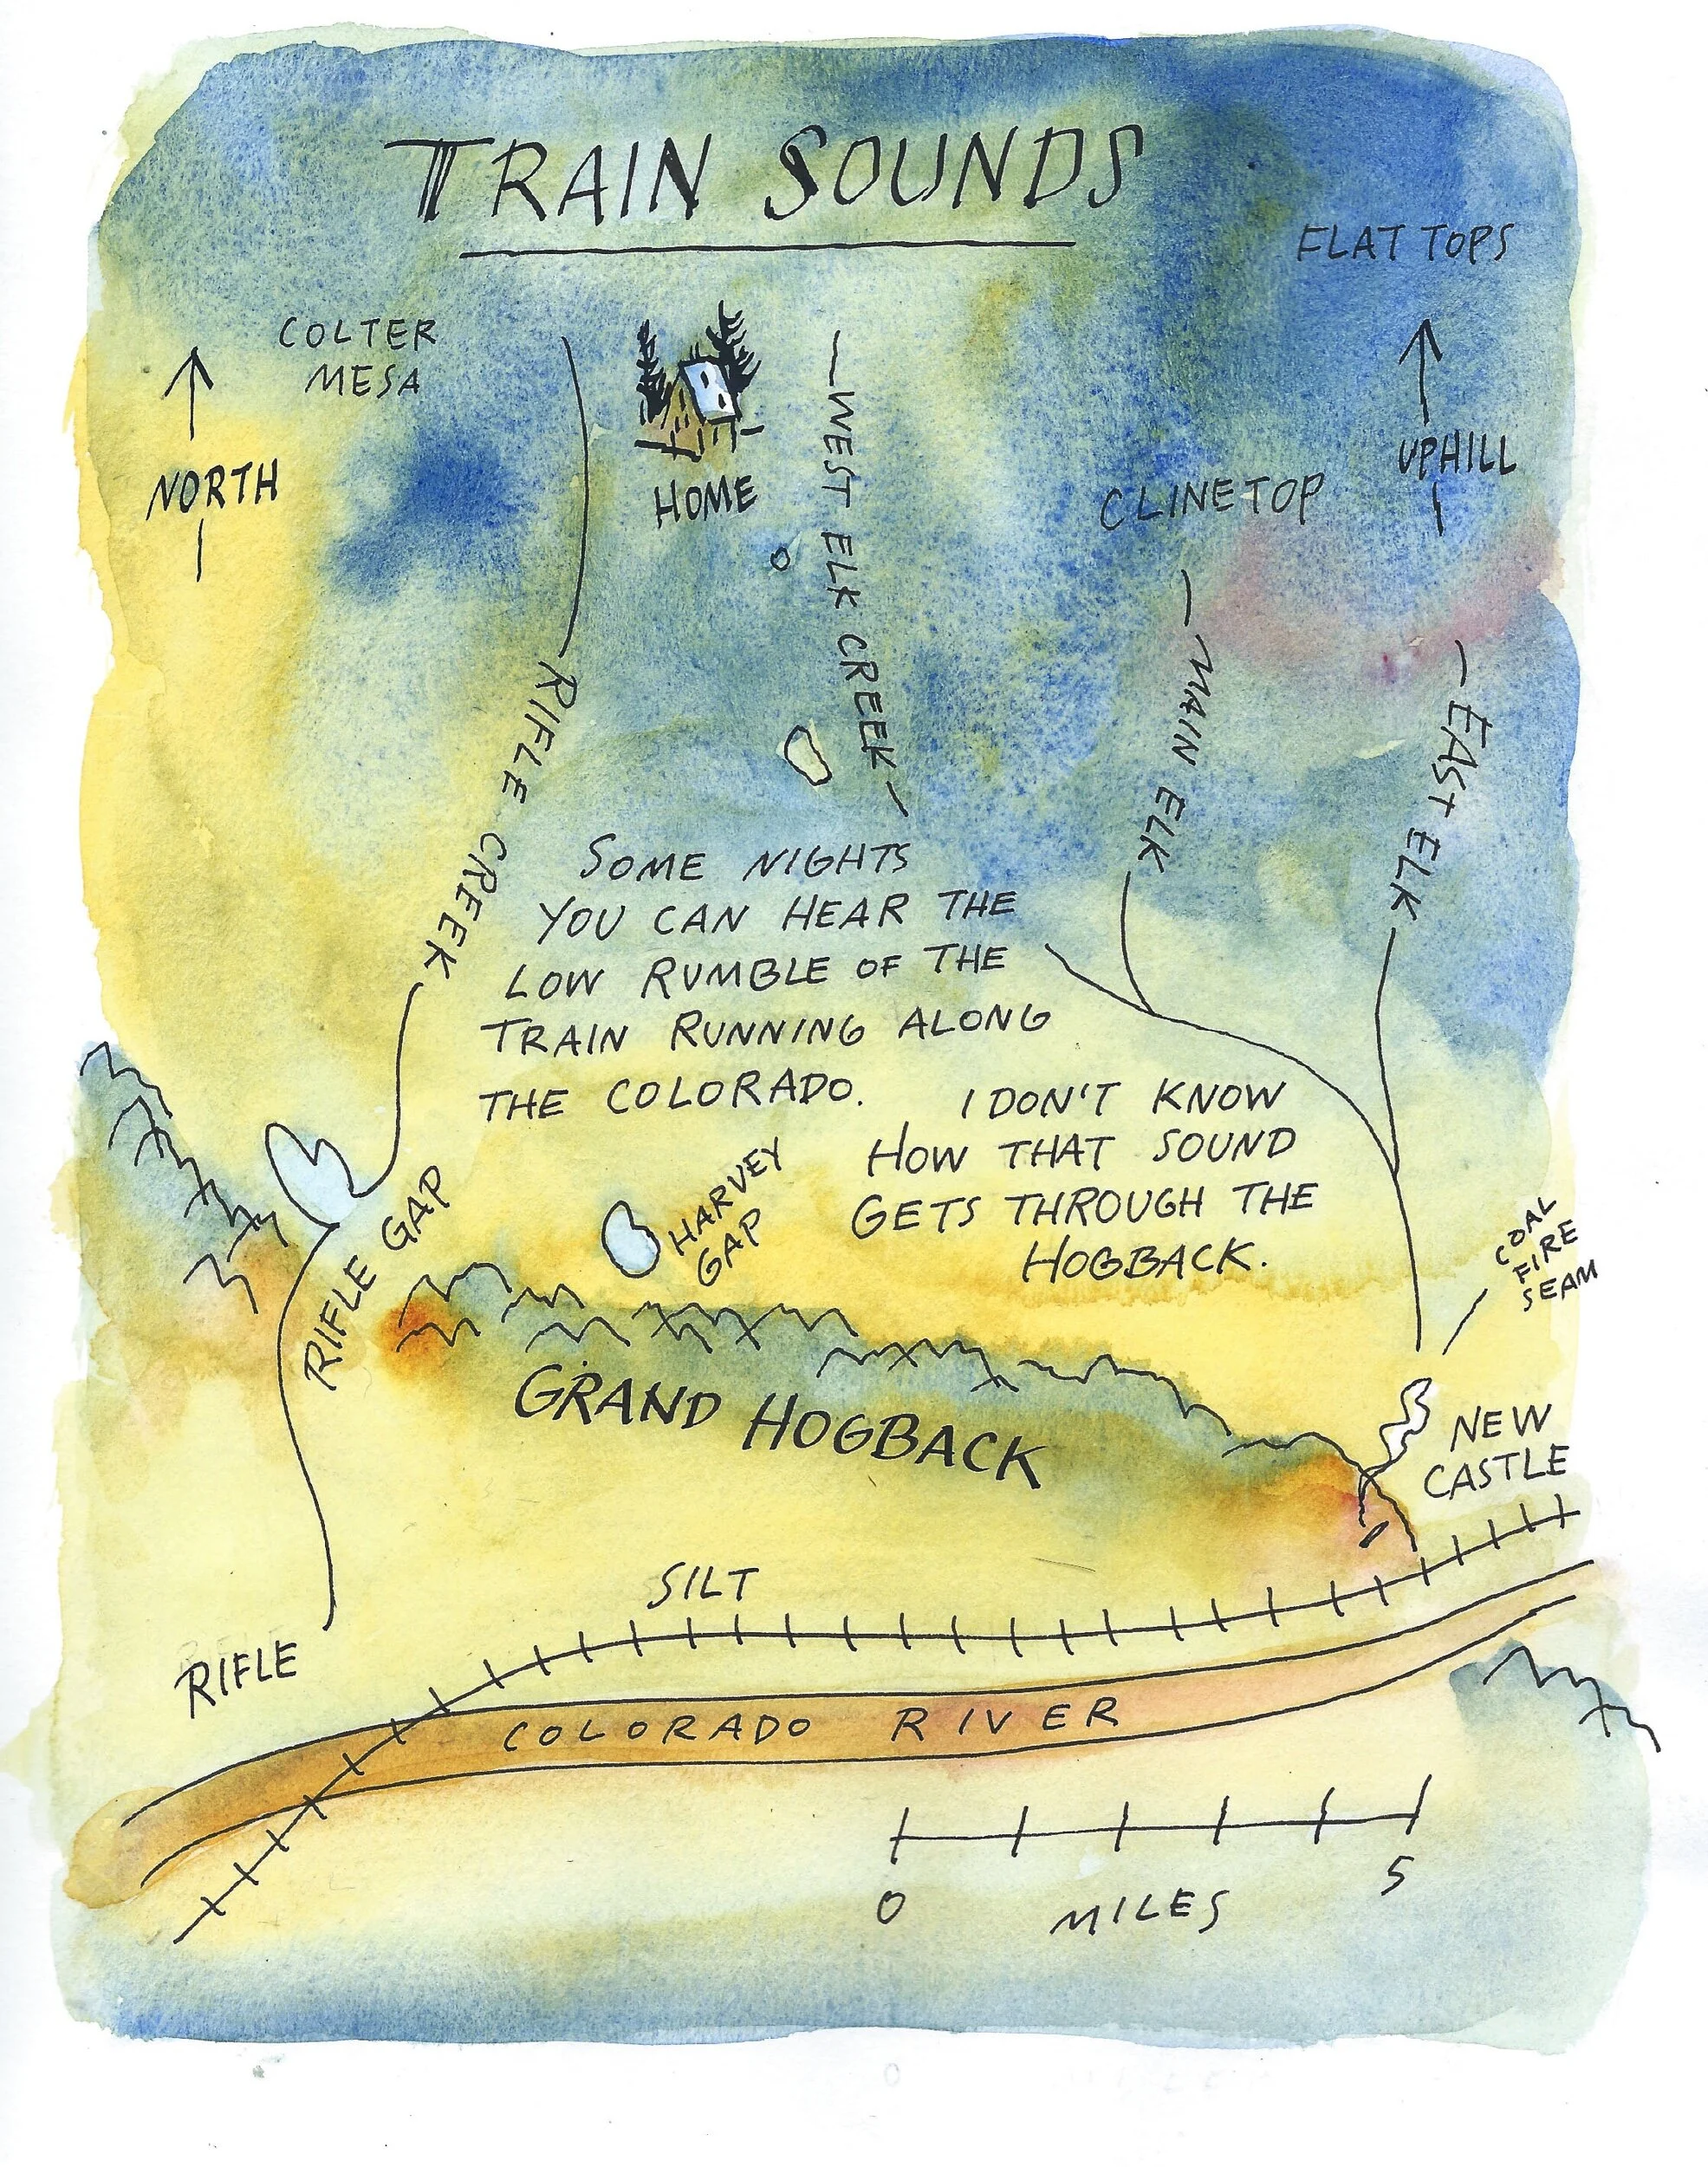 TRAIN SOUNDS
FLAT TOPS
COLTER
MESA
NORTH
HOME
WEST ELK CREEK
CLINETOP
UPHILL
RIFLE CREEK
MAIN ELK
EAST ELK
SOME NIGHTS
YOU CAN HEAR THE
LOW RUMBLE OF THE
TRAIN RUNNING ALONG
THE COLORADO.
I DON'T KNOW
HOW THAT SOUND
GETS THROUGH THE
HOGBACK.
RIFLE GAP
HARVEY
GAP
COAL
FIRE
SEAM
GRAND HOGBACK
NEW
CASTLE
SILT
RIFLE
COLORADO RIVER
0
5
MILES